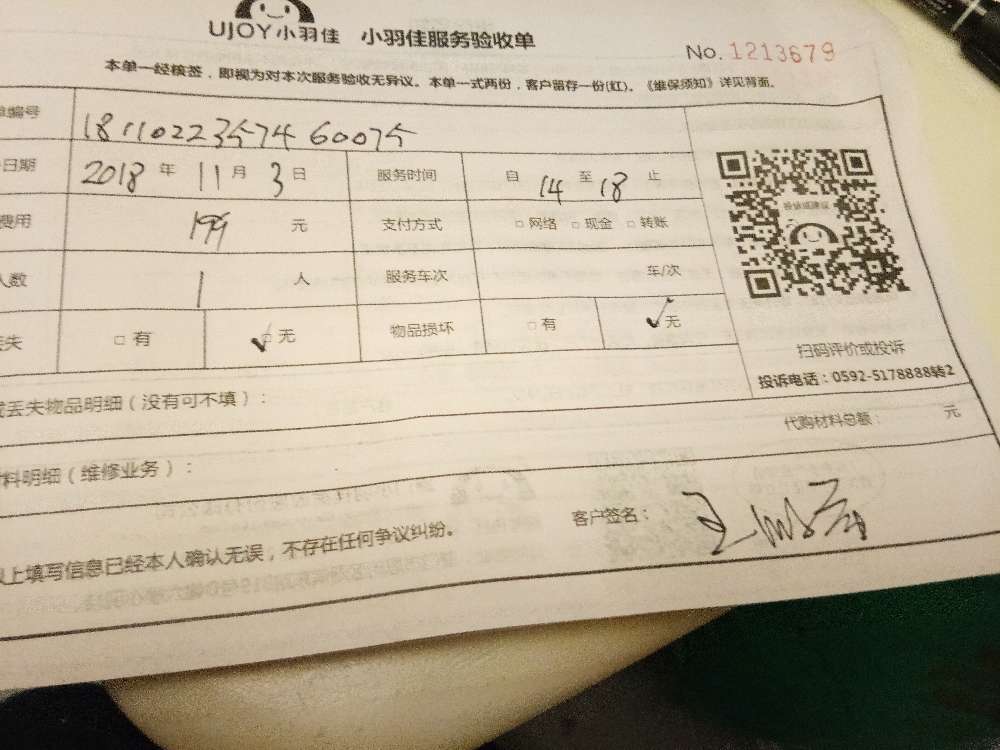 UJOY小羽佳 小羽佳服务验收单
No. 1213679
本单一经核签，即视为对本次服务验收无异议。本单一式两份，客户留存一份(红)。《维保须知》详见背面。
编号 1811022357460075
日期 2018 年 11 月 3 日 服务时间 自 14 至 18 止
费用 199 元 支付方式 □ 网络 □ 现金 □ 转账
人数 1 人 服务车次 车/次
丢失 □ 有 ☑ 无 物品损坏 □ 有 ☑ 无
扫码评价或投诉
投诉电话：0592-5178888转2
丢失物品明细（没有可不填）：
代购材料总额： 元
料明细（维修业务）：
以上填写信息已经本人确认无误，不存在任何争议纠纷。
客户签名： 王